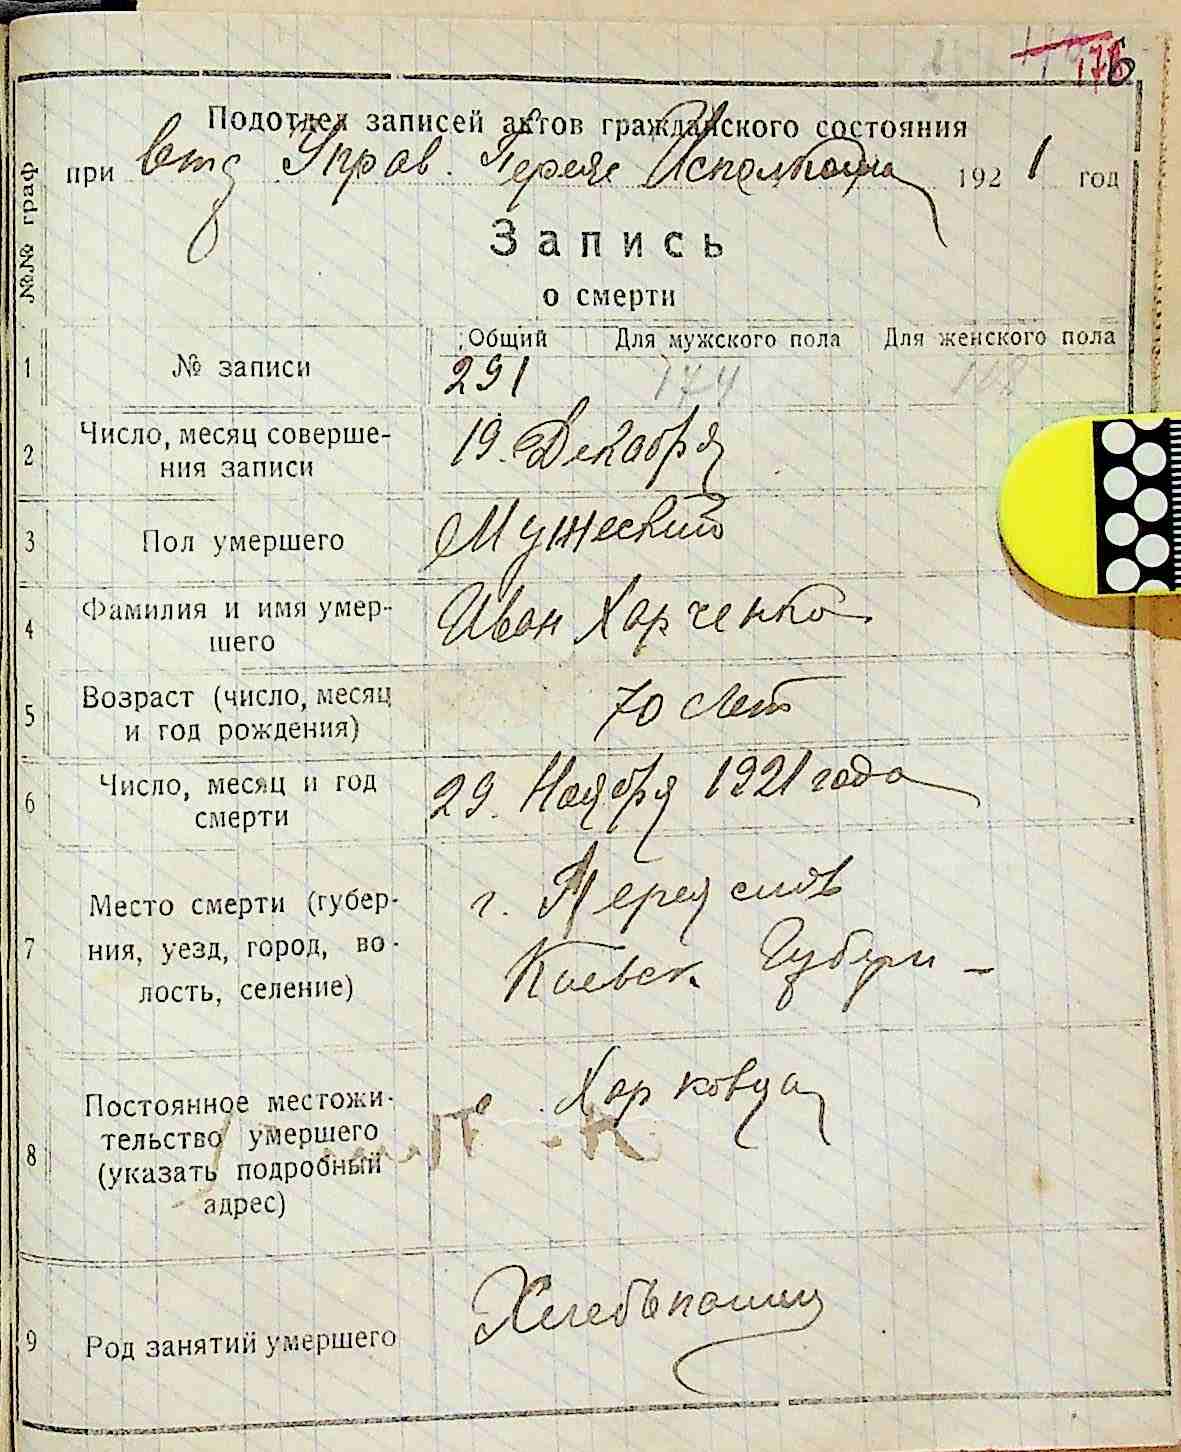 176
Подотдел записей актов гражданского состояния
при Отд Управ. Переяс Исполкома 1921 год
№№ граф
Запись
о смерти
Общий Для мужского пола Для женского пола
1 № записи 291 174
2 Число, месяц соверше-
ния записи 19 Декабря
3 Пол умершего Мужеский
4 Фамилия и имя умер-
шего Иван Харченко
5 Возраст (число, месяц
и год рождения) 70 лет
6 Число, месяц и год
смерти 29 Ноября 1921 года
7 Место смерти (губер-
ния, уезд, город, во-
лость, селение) г. Переяслов
Киевск. Губерн
8 Постоянное местожи-
тельство умершего
(указать подробный
адрес) Харковца
9 Род занятий умершего Хлебъпашец